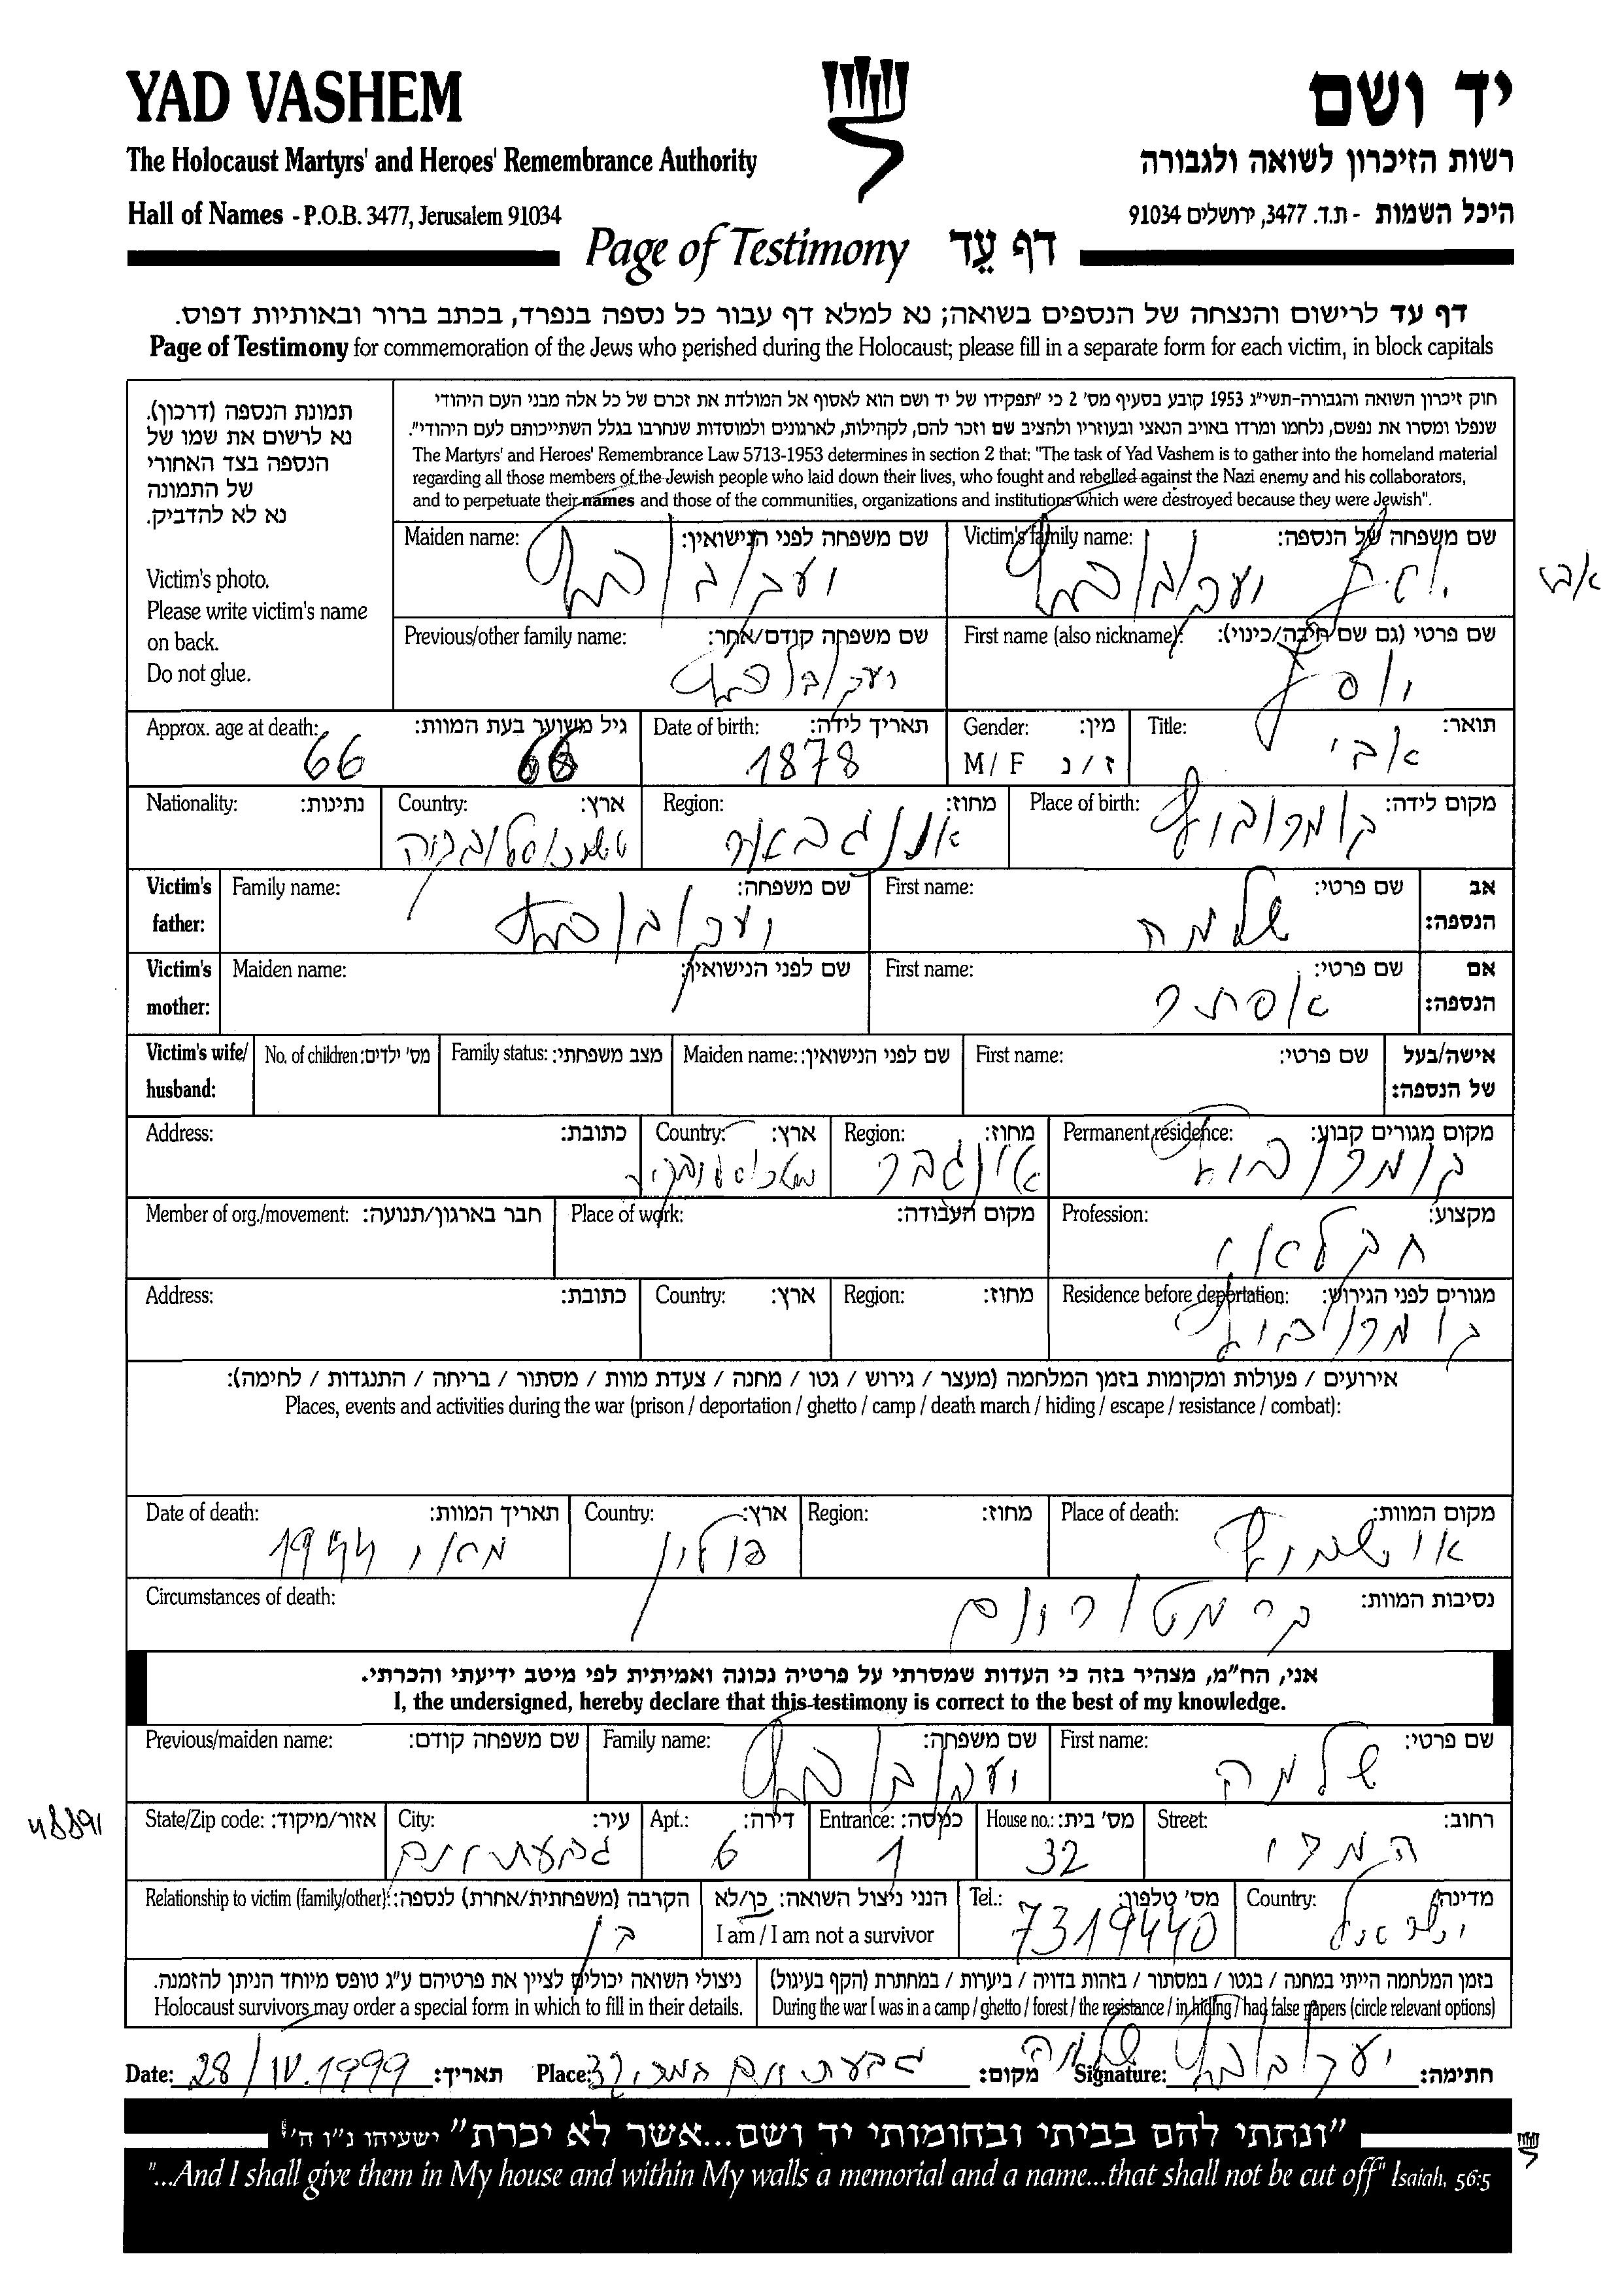 YAD VASHEM
יד ושם
The Holocaust Martyrs' and Heroes' Remembrance Authority
רשות הזיכרון לשואה ולגבורה
Hall of Names - P.O.B. 3477, Jerusalem 91034
היכל השמות - ת.ד. 3477, ירושלים 91034
Page of Testimony דף עֵד
דף עד לרישום והנצחה של הנספים בשואה; נא למלא דף עבור כל נספה בנפרד, בכתב ברור ובאותיות דפוס.
Page of Testimony for commemoration of the Jews who perished during the Holocaust; please fill in a separate form for each victim, in block capitals
תמונת הנספה (דרכון).
נא לרשום את שמו של
הנספה בצד האחורי
של התמונה
נא לא להדביק.
Victim's photo.
Please write victim's name
on back.
Do not glue.
חוק זיכרון השואה והגבורה-תשי"ג 1953 קובע בסעיף מס' 2 כי "תפקידו של יד ושם הוא לאסוף אל המולדת את זכרם של כל אלה מבני העם היהודי
שנפלו ומסרו את נפשם, נלחמו ומרדו באויב הנאצי ובעוזריו ולהציב שם וזכר להם, לקהילות, לארגונים ולמוסדות שנחרבו בגלל השתייכותם לעם היהודי".
The Martyrs' and Heroes' Remembrance Law 5713-1953 determines in section 2 that: "The task of Yad Vashem is to gather into the homeland material
regarding all those members of the Jewish people who laid down their lives, who fought and rebelled against the Nazi enemy and his collaborators,
and to perpetuate their names and those of the communities, organizations and institutions which were destroyed because they were Jewish".
Victim's family name: שם משפחה של הנספה:
יעקובוביץ
Maiden name: שם משפחה לפני הנישואין:
יעקובוביץ
First name (also nickname): שם פרטי (גם שם חיבה/כינוי):
יוסף
Previous/other family name: שם משפחה קודם/אחר:
יעקובוביץ
Title: תואר:
אבי
Gender: מין:
M / F ז / נ
Date of birth: תאריך לידה:
1878
Approx. age at death: גיל משוער בעת המוות:
66 66
Place of birth: מקום לידה:
Region: מחוז:
Country: ארץ:
Nationality: נתינות:
אב הנספה:
First name: שם פרטי:
שלמה
Family name: שם משפחה:
יעקובוביץ
Victim's father:
אם הנספה:
First name: שם פרטי:
אסתר
Maiden name: שם לפני הנישואין:
Victim's mother:
אישה/בעל של הנספה:
First name: שם פרטי:
Maiden name: שם לפני הנישואין:
Family status: מצב משפחתי:
No. of children: מס' ילדים:
Victim's wife/ husband:
Permanent residence: מקום מגורים קבוע:
Region: מחוז:
אונגבר
Country: ארץ:
Address: כתובת:
Profession: מקצוע:
חקלאי
Place of work: מקום העבודה:
Member of org./movement: חבר בארגון/תנועה:
Residence before deportation: מגורים לפני הגירוש:
Region: מחוז:
Country: ארץ:
Address: כתובת:
אירועים / פעולות ומקומות בזמן המלחמה (מעצר / גירוש / גטו / מחנה / צעדת מוות / מסתור / בריחה / התנגדות / לחימה):
Places, events and activities during the war (prison / deportation / ghetto / camp / death march / hiding / escape / resistance / combat):
Place of death: מקום המוות:
אושוויץ
Region: מחוז:
Country: ארץ:
פולין
Date of death: תאריך המוות:
מאי 1944
Circumstances of death: נסיבות המוות:
קרמטוריום
אני, הח"מ, מצהיר בזה כי העדות שמסרתי על פרטיה נכונה ואמיתית לפי מיטב ידיעתי והכרתי.
I, the undersigned, hereby declare that this testimony is correct to the best of my knowledge.
First name: שם פרטי:
שלמה
Family name: שם משפחה:
יעקובוביץ
Previous/maiden name: שם משפחה קודם:
Street: רחוב:
המרי
House no.: מס' בית:
32
Entrance: כניסה:
1
Apt.: דירה:
6
City: עיר:
גבעתיים
State/Zip code: אזור/מיקוד:
48891
Country: מדינה:
ישראל
Tel.: מס' טלפון:
7319440
הנני ניצול השואה: כן/לא
I am / I am not a survivor
Relationship to victim (family/other): הקרבה (משפחתית/אחרת) לנספה:
בן
בזמן המלחמה הייתי במחנה / בגטו / במסתור / בזהות בדויה / ביערות / במחתרת (הקף בעיגול)
During the war I was in a camp / ghetto / forest / the resistance / in hiding / had false papers (circle relevant options)
ניצולי השואה יכולים לציין את פרטיהם ע"ג טופס מיוחד הניתן להזמנה.
Holocaust survivors may order a special form in which to fill in their details.
Date: 28/IV.1999 תאריך:
Place: גבעתיים המרי 32 מקום:
Signature: יעקובוביץ שלמה חתימה:
"ונתתי להם בביתי ובחומותי יד ושם...אשר לא יכרת" ישעיהו נ"ו ה'
"...And I shall give them in My house and within My walls a memorial and a name...that shall not be cut off" Isaiah, 56:5